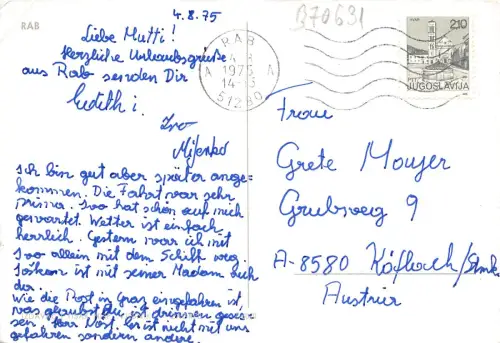 RAB
4.8.75
B70631
Liebe Mutti!
Herzliche Urlaubsgrüße
aus Rab senden Dir
Edith i.
Ivo
Miljenko
Ich bin gut aber später ange-
kommen. Die Fahrt war sehr
prima. Ivo hat schon auf mich
gewartet. Wetter ist einfach
herrlich. Gestern war ich mit
Ivo allein mit dem Schiff weg.
ist mit seiner Madam auch
da.
Wie die Post in Graz eingefahren ist
was glaubst du ist drinnen geses-
sen. Herr Er ist nicht mit uns
gefahren sondern andere.
RAB
A 4.8 A
1975
14-15
51280
2.10
RAB
PTT
JUGOSLAVIJA
Frau
Grete Mouyer
Grubsweg 9
A-8580 Köflach/Stmk
Austrier